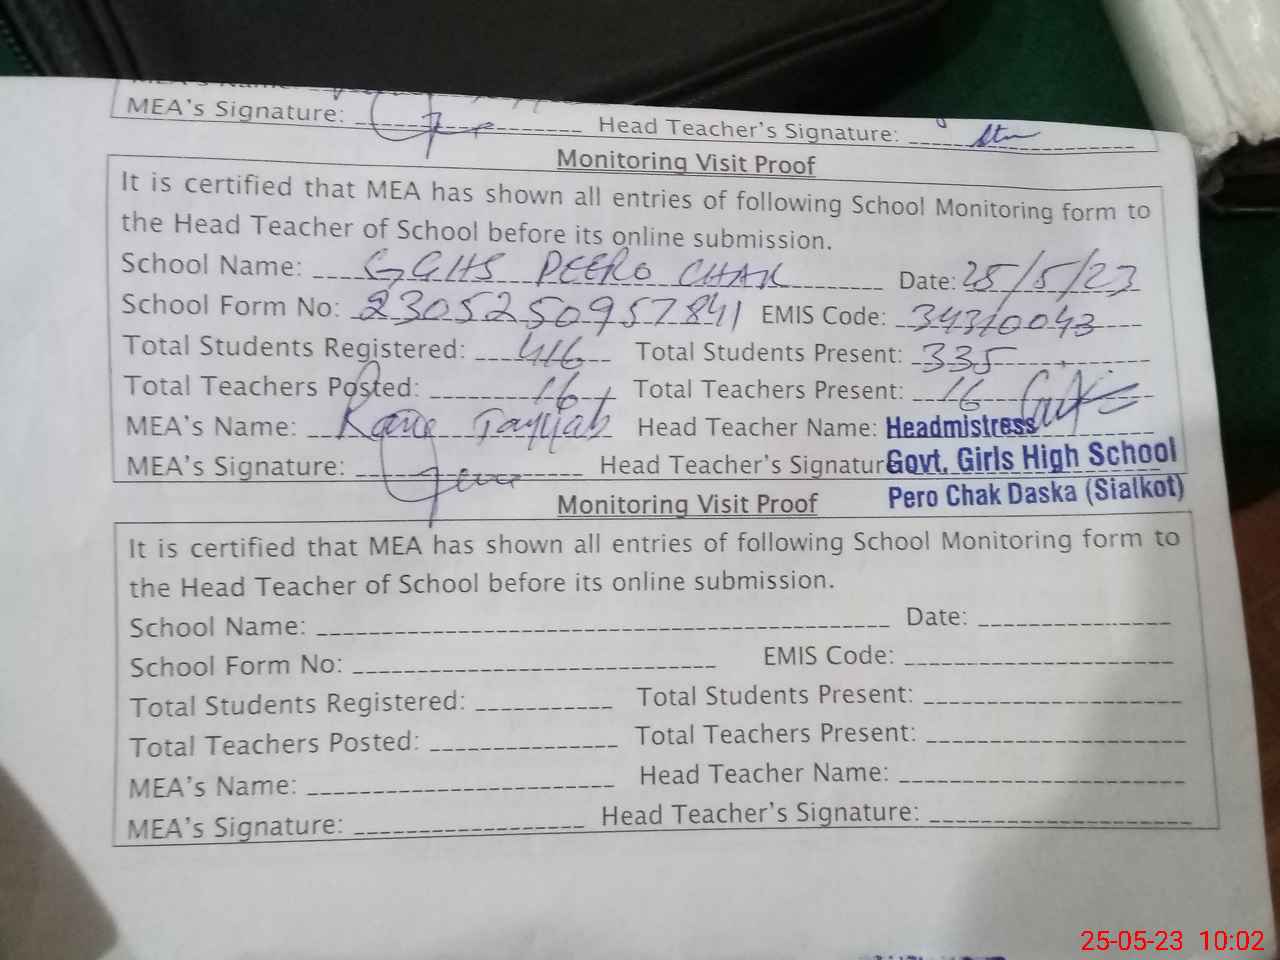 MEA's Name:
MEA's Signature: Head Teacher's Signature:
Monitoring Visit Proof
It is certified that MEA has shown all entries of following School Monitoring form to
the Head Teacher of School before its online submission.
School Name: GGHS PEERO CHAK Date: 25/5/23
School Form No: 2305250957841 EMIS Code: 34310043
Total Students Registered: 416 Total Students Present: 335
Total Teachers Posted: 16 Total Teachers Present: 16
MEA's Name: Rana Tayyab Head Teacher Name: Headmistress
MEA's Signature: Head Teacher's Signature Govt. Girls High School
Monitoring Visit Proof Pero Chak Daska (Sialkot)
It is certified that MEA has shown all entries of following School Monitoring form to
the Head Teacher of School before its online submission.
School Name: Date:
School Form No: EMIS Code:
Total Students Registered: Total Students Present:
Total Teachers Posted: Total Teachers Present:
MEA's Name: Head Teacher Name:
MEA's Signature: Head Teacher's Signature:
25-05-23 10:02